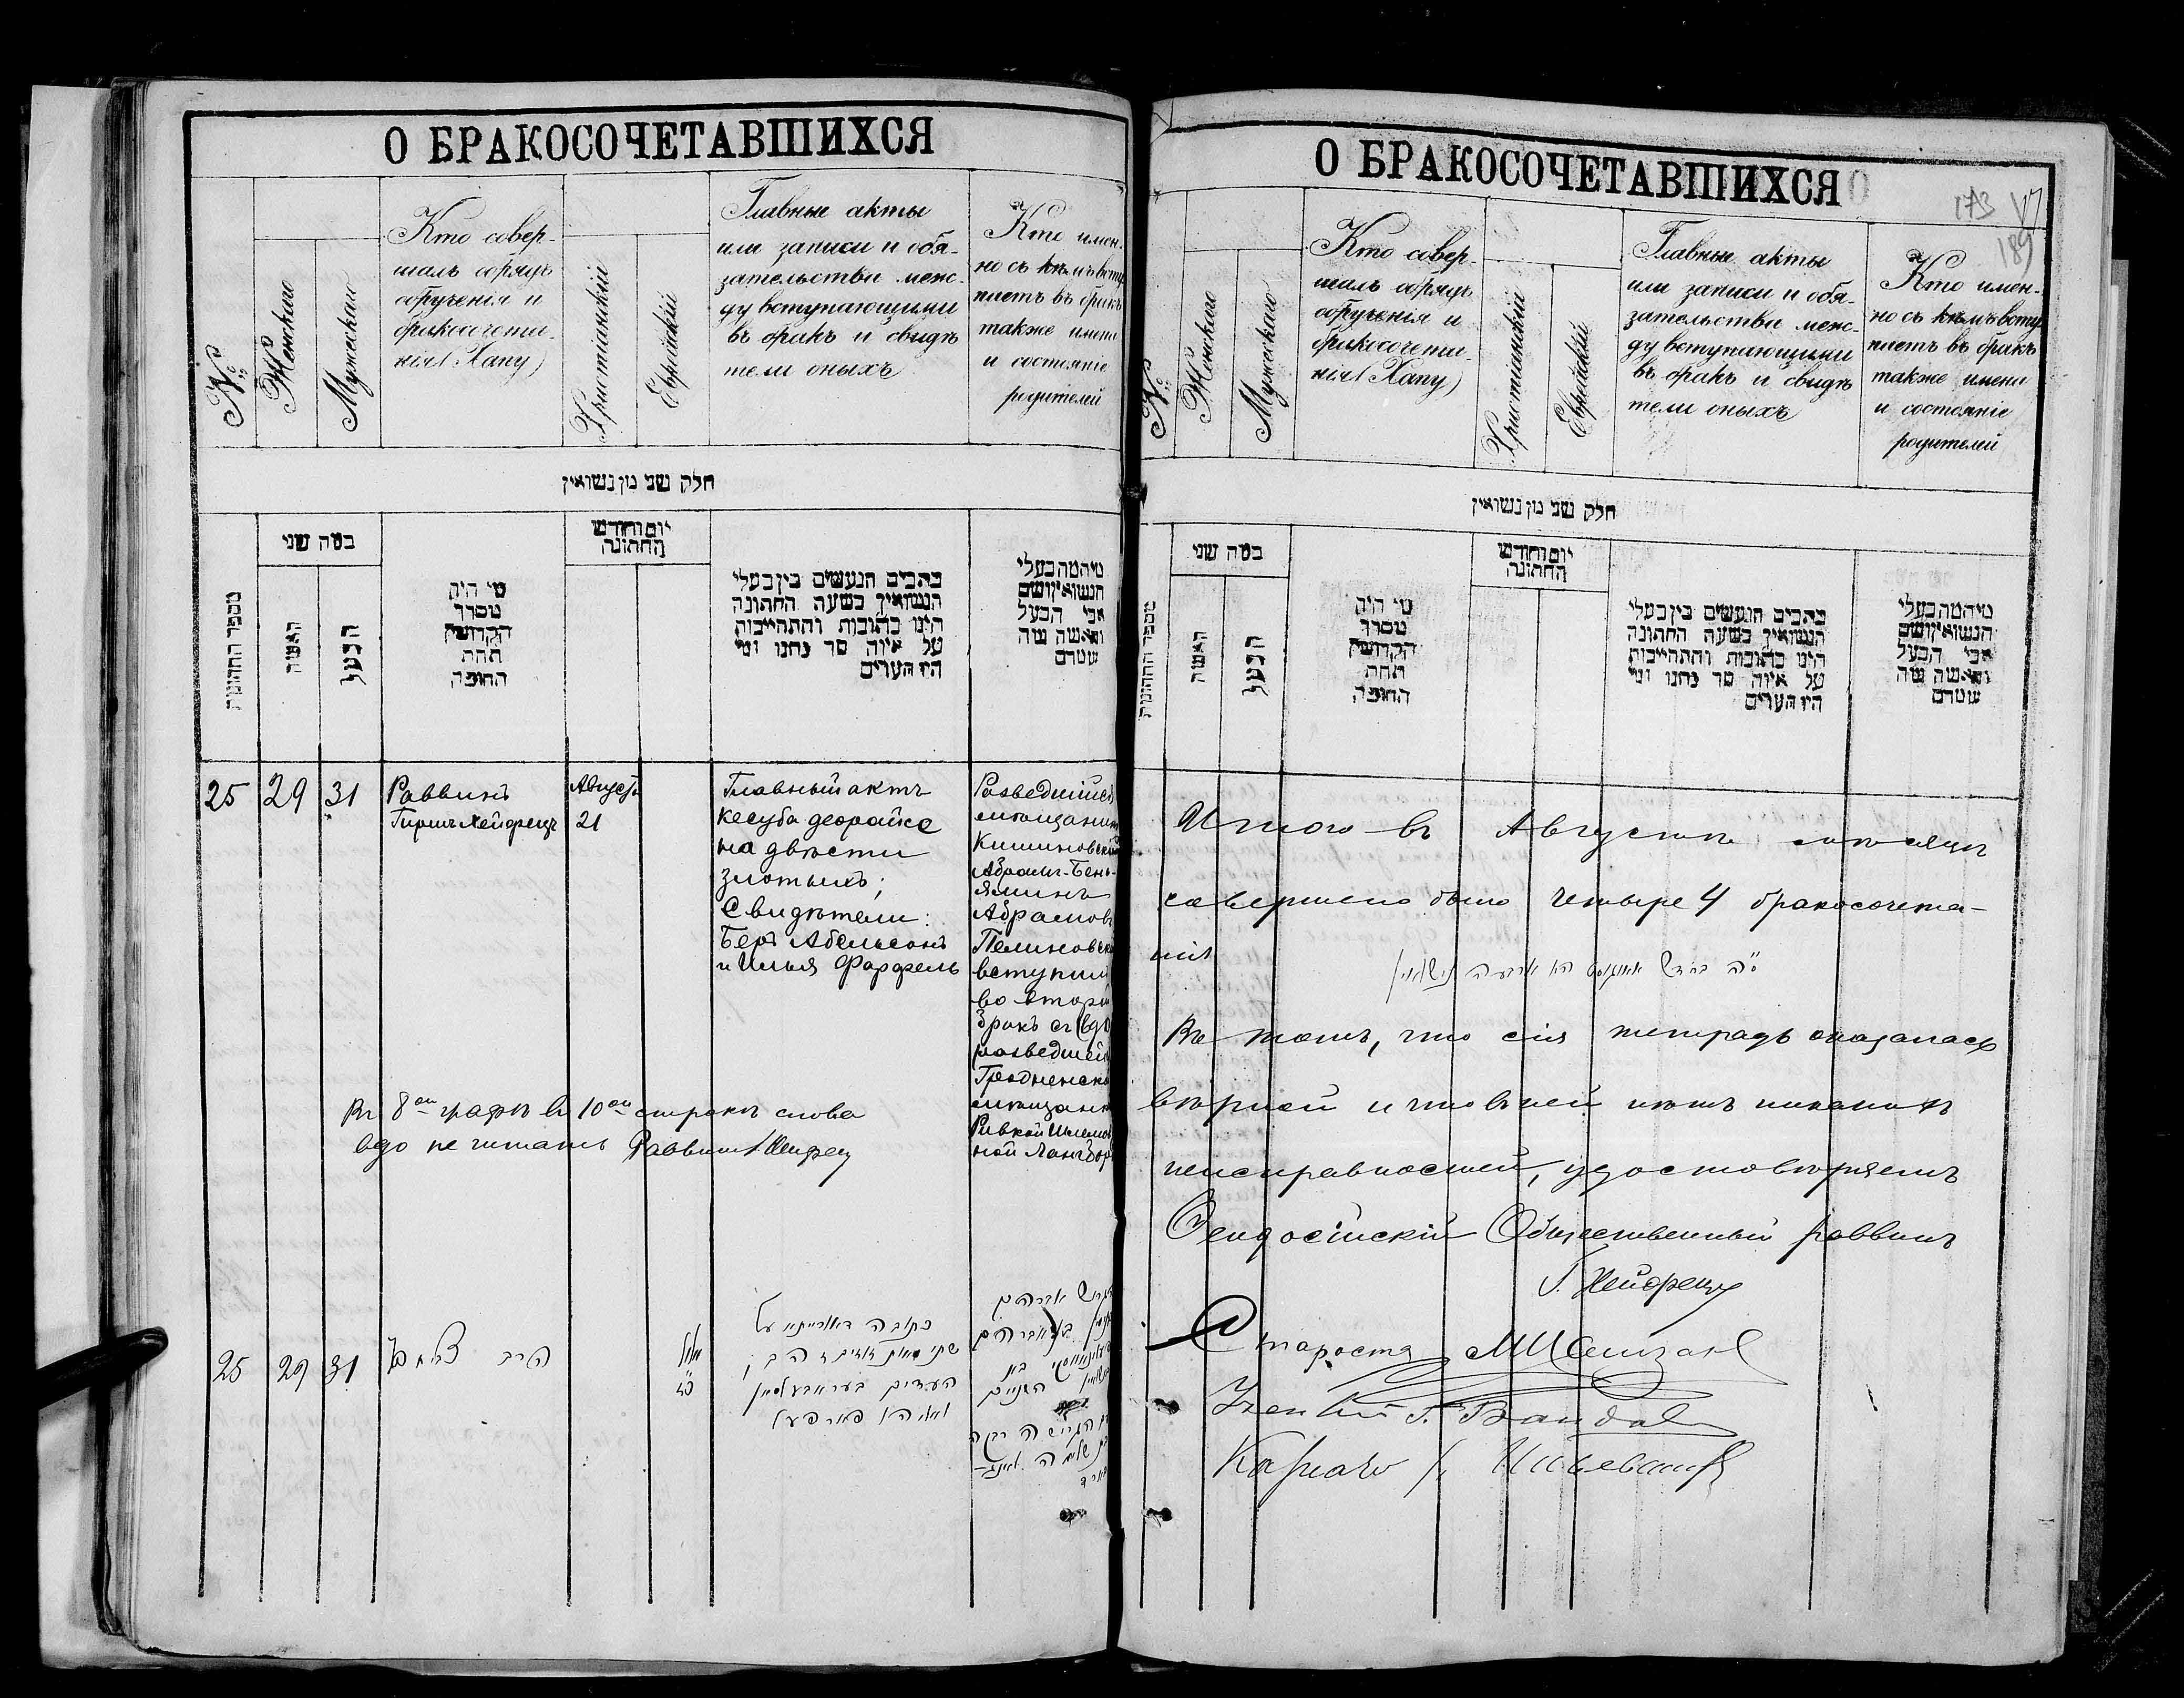 О БРАКОСОЧЕТАВШИХСЯ
№
Женскаго
Мужескаго
Кто совер-
шалъ обрядъ
обрученія и
бракосочета-
нія (Хапу)
Христіанскій
Еврейскій
Главные акты
или записи и обя-
зательства меж-
ду вступающими
въ бракъ и свидѣ
тели оныхъ
Кто имен-
но съ кѣмъ всту
паетъ въ бракъ
также имена
и состояніе
родителей
חלק שני מן נשואין
מספר החתונות
במה שני
האשה
הבעל
מי היה
מסדר
הקדושין
תחת
החופה
יום וחודש
החתונה
כתבים הנעשים בין בעלי
הנשואין בשעה החתונה
היינו כתובות והתחייבות
על איזה סך נתנו ומי
היו העדים
מיהמה בעלי
הנשואין ושם
אבי הבעל
והאשה מה
שמדם
25
29
31
Раввинъ
Гиршъ Хейфецъ
Августъ
21
Главный актъ
кесуба деорайсе
на двѣсти
злотыхъ;
Свидѣтели:
Беръ Абельсонъ
и Илья Фарфель
Разведшійся
мѣщанинъ
Кишиновскій
Абрамъ-Бень-
яминъ
Абрамовъ
Пелиновск
вступил
во второй
бракъ съ (вдо
разведшей
Гродненск
мѣщанк
Ривкой Шлемов
ной Лангбор
Въ 8ой графѣ въ 10ой строкѣ слова
вдо не читать Раввинъ Г. Хейфец
25
29
31
הרב
אלול
כתובה דאורייתא על
שתי מאות זהובים
העדים בער אבעלסאן
ואליהו פארפעל
גרוש אברהם
בנימין בן אברהם
הגרושה רבקה
בת שלמה לאנג-
בארד
О БРАКОСОЧЕТАВШИХСЯ
173
189
№
Женскаго
Мужескаго
Кто совер-
шалъ обрядъ
обрученія и
бракосочета-
нія (Хапу)
Христіанскій
Еврейскій
Главные акты
или записи и обя-
зательства меж-
ду вступающими
въ бракъ и свидѣ
тели оныхъ
Кто имен-
но съ кѣмъ всту
паетъ въ бракъ
также имена
и состояніе
родителей
חלק שני מן נשואין
מספר החתונות
במה שני
האשה
הבעל
מי היה
מסדר
הקדושין
תחת
החופה
יום וחודש
החתונה
כתבים הנעשים בין בעלי
הנשואין בשעה החתונה
היינו כתובות והתחייבות
על איזה סך נתנו ומי
היו העדים
מיהמה בעלי
הנשואין ושם
אבי הבעל
והאשה מה
שמדם
Итого въ Августѣ мѣсяцѣ
совершено было четыре 4 бракосочета-
нія
ס״ה בחדש אוגוסט ארבעה נישואין
Въ томъ, что сія тетрадь оказалась
вѣрной и что въ ней нѣтъ никакихъ
неисправностей, удостовѣряемъ
Феодосійскій Общественный раввинъ
Г. Хейфецъ
Староста